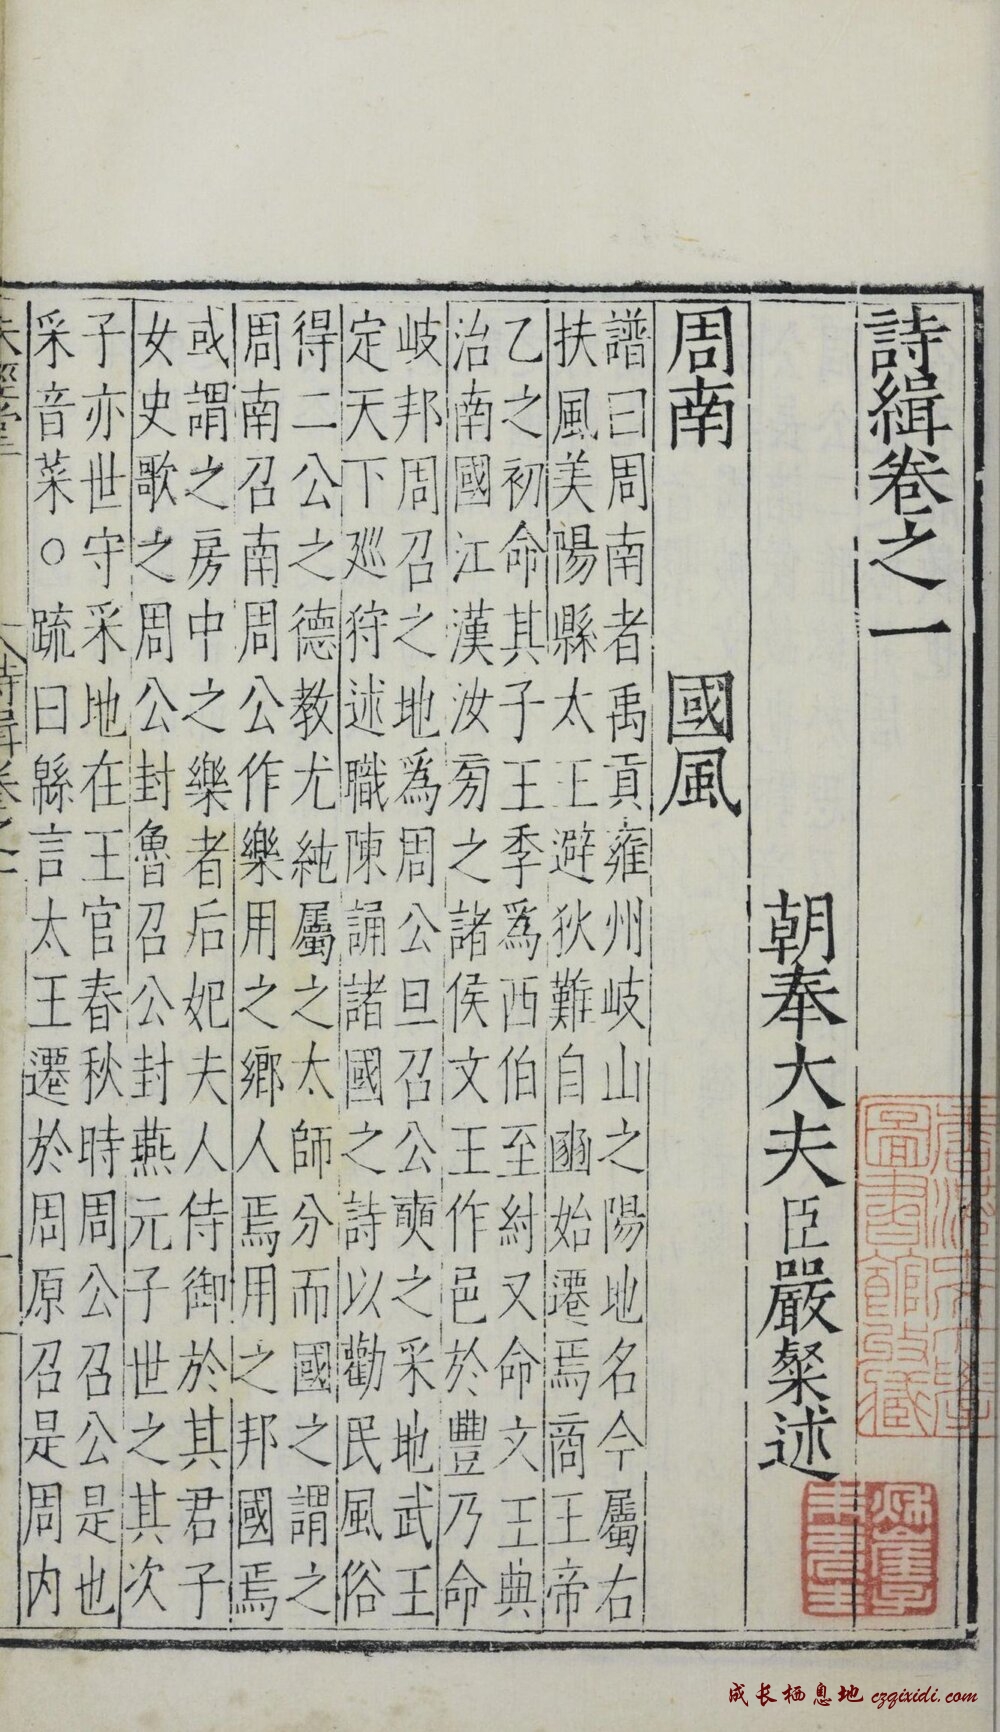 詩緝卷之一
朝奉大夫臣嚴粲述
周南 國風
譜曰周南者禹貢雍州岐山之陽地名今屬右
扶風美陽縣太王避狄難自豳始遷焉商王帝
乙之初命其子王季爲西伯至紂又命文王典
治南國江漢汝旁之諸侯文王作邑於豐乃命
岐邦周召之地爲周公旦召公奭之采地武王
定天下巡狩述職陳誦諸國之詩以勸民風俗
得二公之德教尤純屬之太師分而國之謂之
周南召南周公作樂用之鄉人焉用之邦國焉
或謂之房中之樂者后妃夫人侍御於其君子
女史歌之周公封魯召公封燕元子世之其次
子亦世守采地在王官春秋時周公召公是也
采音菜○疏曰緜言太王遷於周原召是周内
詩緝卷之一
成长栖息地 czqixidi.com